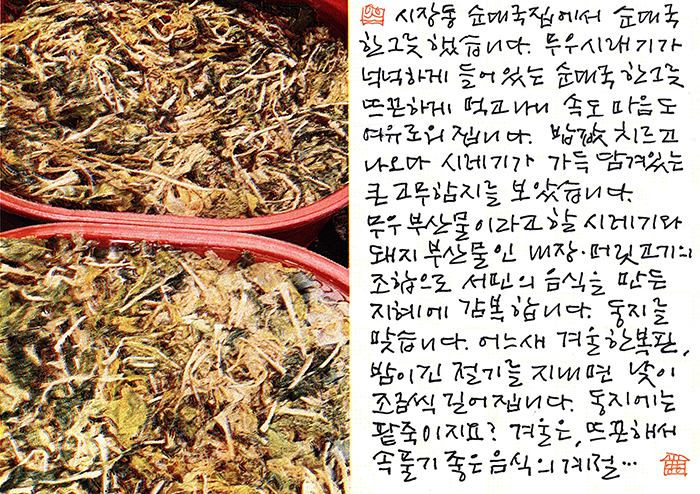 시장통 순대국집에서 순대국
한그릇 했습니다. 무우시래기가
넉넉하게 들어있는 순대국 한그릇
뜨끈하게 먹고나니 속도 마음도
여유로워집니다. 밥값 치르고
나오다 시레기가 가득 담겨있는
큰 고무함지를 보았습니다.
무우 부산물이라고 할 시레기와
돼지 부산물인 내장·머릿고기의
조합으로 서민의 음식을 만든
지혜에 감복합니다. 동지를
맞습니다. 어느새 겨울한복판,
밤이 긴 절기를 지내면 낮이
조금씩 길어집니다. 동지에는
팥죽이지요? 겨울은, 뜨끈해서
속풀기 좋은 음식의 계절...